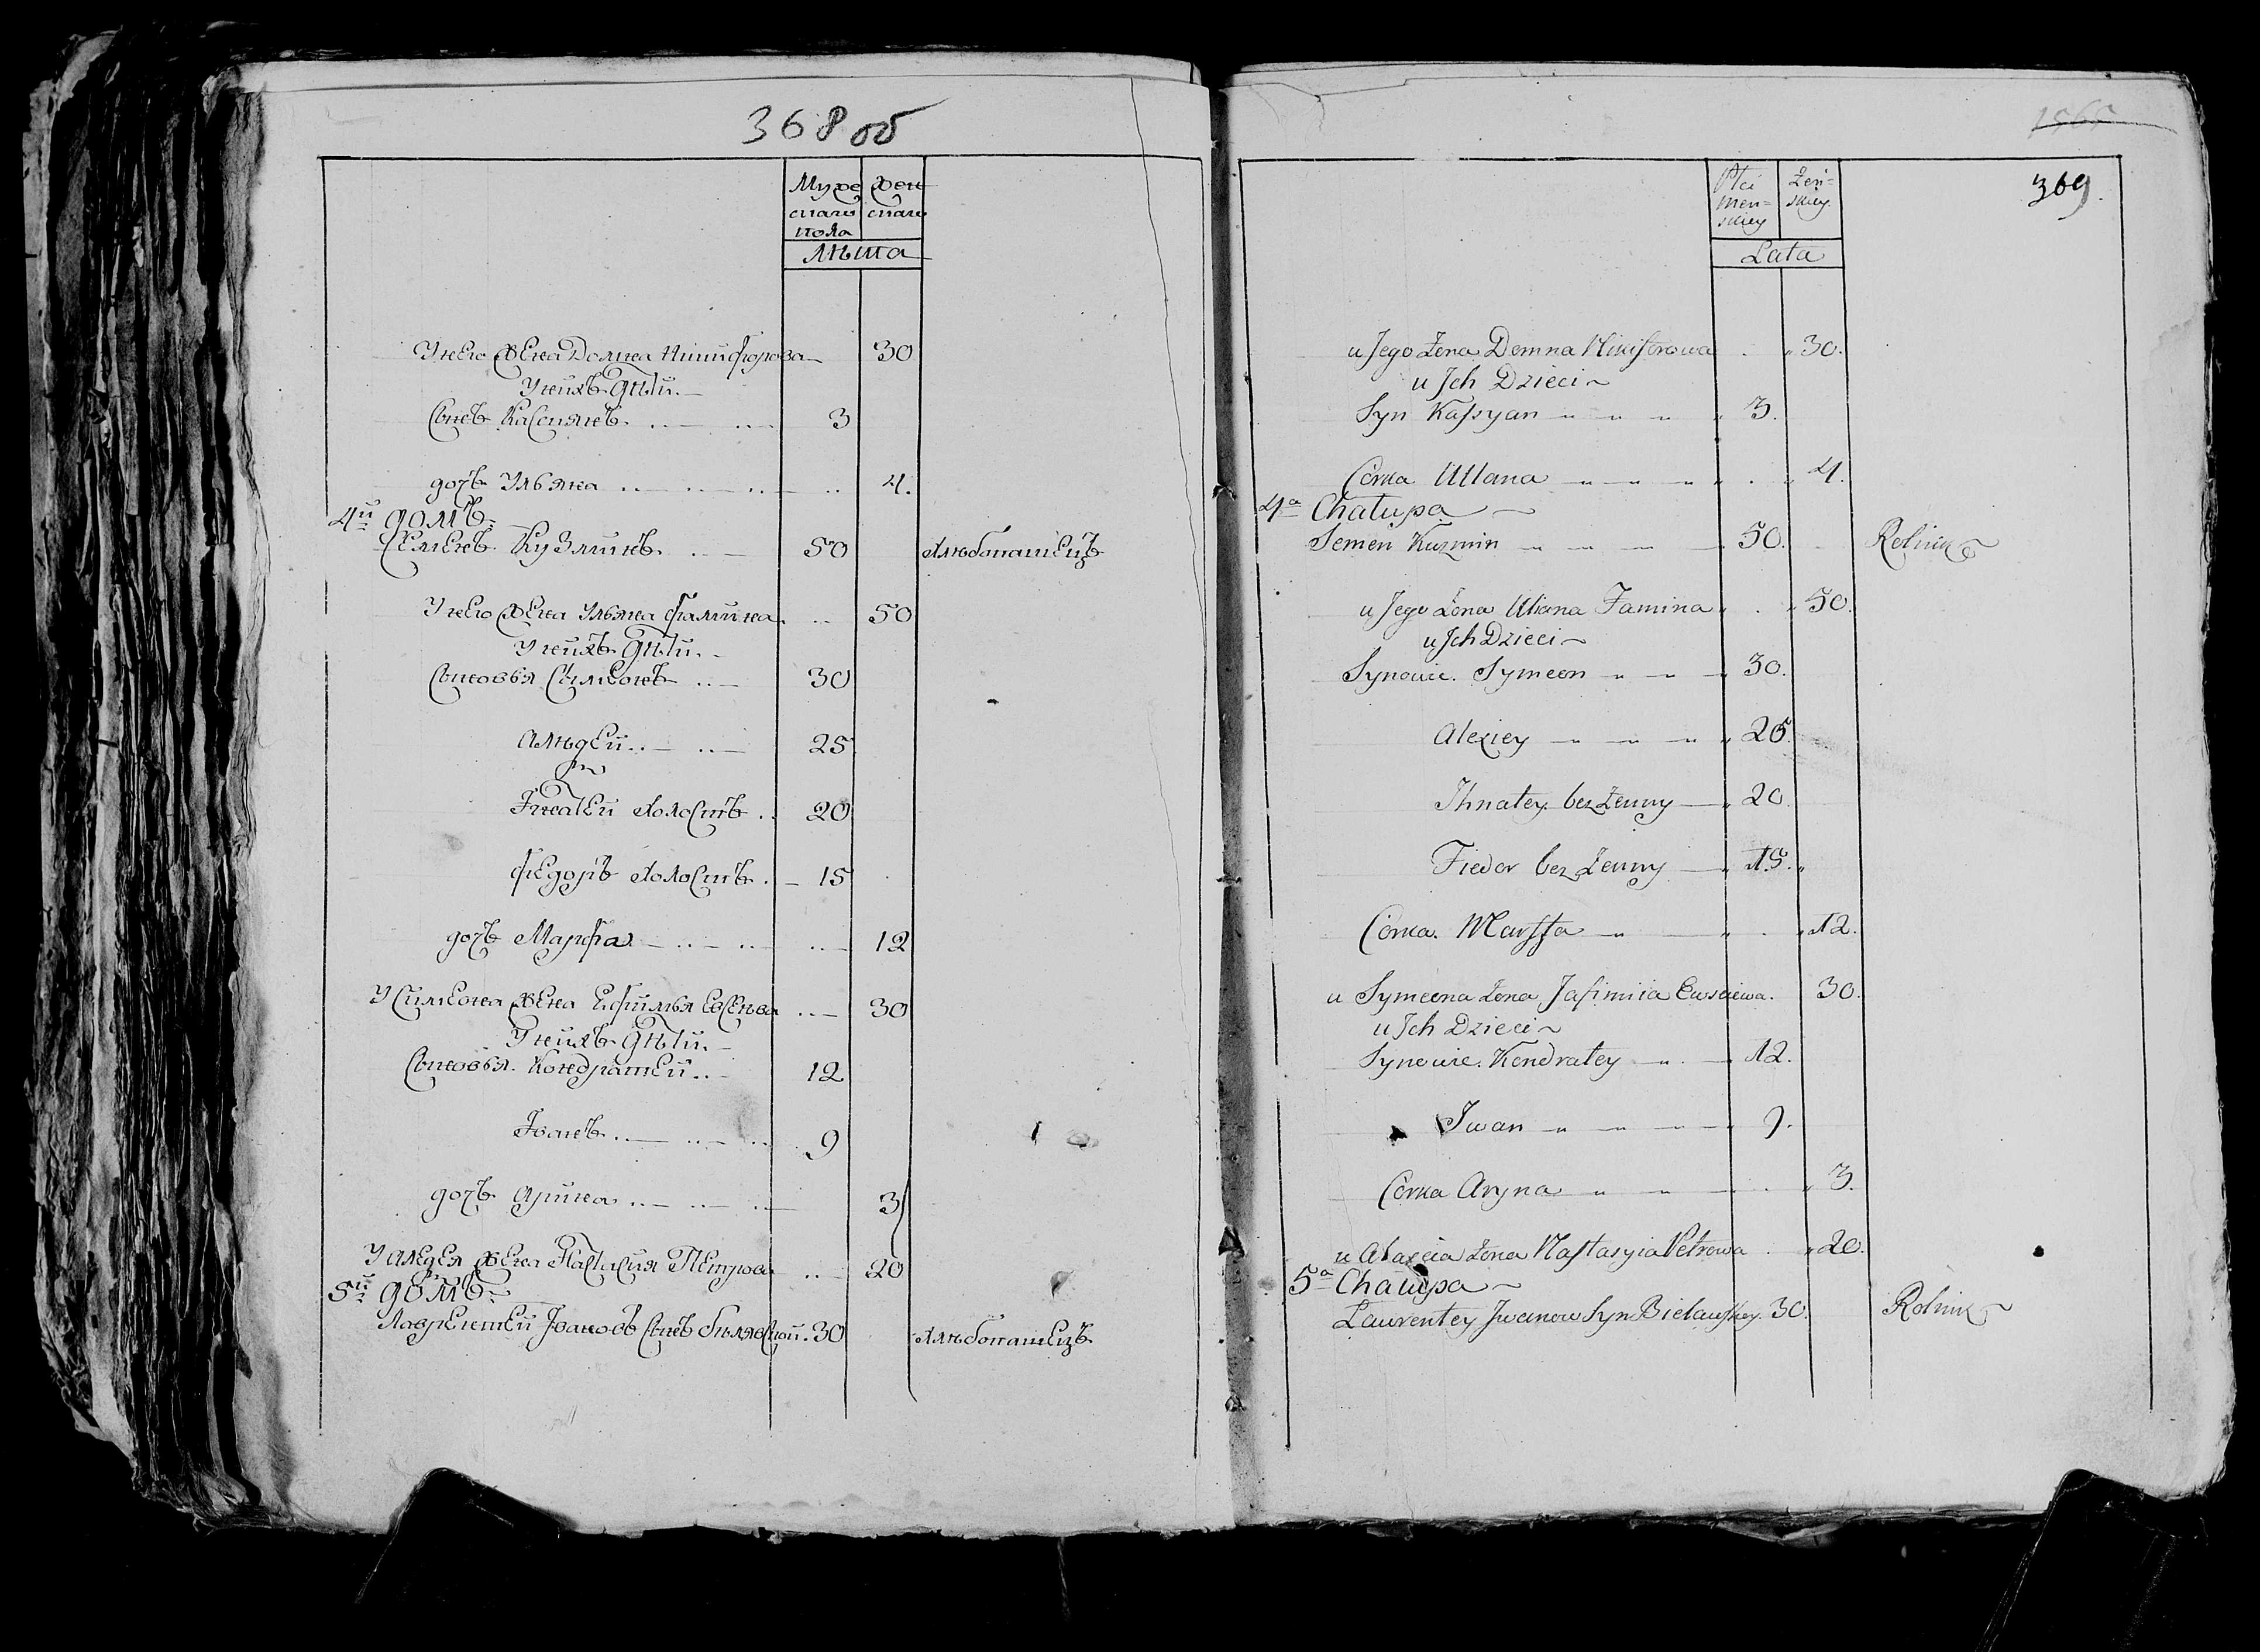 368 об
Мужеска пола Женска
Лѣта
У него жена Домна Никифорова 30
У нихъ дѣти.
Сынъ Касиянъ 3
дочь Ульяна 4.
4й домъ
Семенъ Кузминъ 50 хлѣбопашецъ
У него жена Ульяна Фамина 50
У нихъ дѣти.
Сыновья Симеонъ 30
Алѣѯей 25
Игнатей холостъ 20
Федоръ холостъ 15
дочь Марфа 12
У Симеона жена Ефимья Евсѣева 30
У нихъ дѣти.
Сыновья. Кондратей 12
Иванъ 9
дочь Арина 3
У Алеѯея жена Настасия Петрова 20
5й домъ
Лаврентей Ивановъ сынъ бѣлявской. 30 хлѣбопашецъ
369.
Płci męn=skiey Żeń=skiey.
Lata
u Jego Żona Domna Nikiforowa 30.
u Jch Dzieci
Syn Kassyan 3.
Córka Ullana 4.
4a Chałupa
Semen Kuzmin 50. Rolnik
u Jego Żona Uliana Famina 50.
u Jch Dzieci
Synowie. Symeon 30.
Alexiey 25.
Ihnatey bez Żenny 20.
Fiedor bez Żenny 15.
Córka. Marffa 12.
u Symeona Żona Jafimiia Ewseiewa. 30.
u Jch Dzieci
Synowie. Kondratey 12.
Jwan 9.
Córka Aryna 3.
u Alaxeia Żona Nastasyia Petrowa 20.
5a Chałupa
Laurentey Jwanow Syn Bielawskey. 30. Rolnik